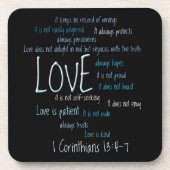 It keeps no record of wrongs
It is not easily angered It always protects
always perseveres
Love does not delight in evil but rejoices with the truth
LOVE
always hopes
It is not proud
It does not boast
It is not self-seeking
It does not envy
Love is patient
It is not rude
always trusts
Love is kind
1 Corinthians 13:4-7